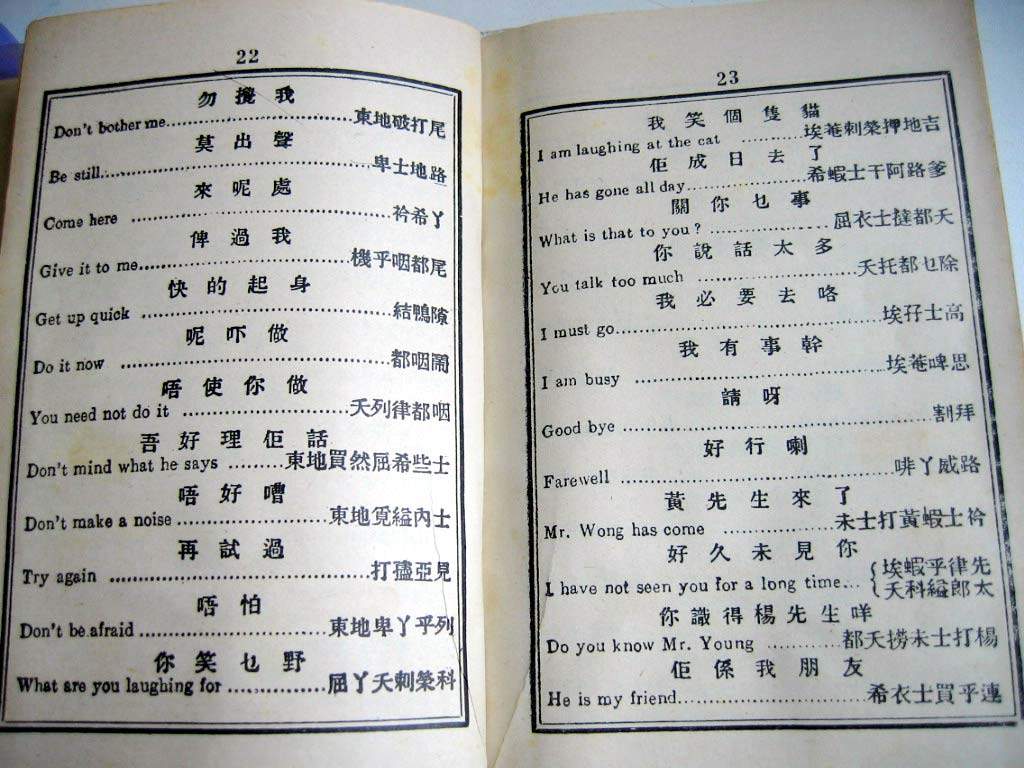 22
勿攪我
Don't bother me 東地破打尾
莫出聲
Be still 卑士地路
來呢處
Come here 衿希丫
俾過我
Give it to me 機乎咽都尾
快的起身
Get up quick 結鴨隙
呢吓做
Do it now 都咽鬧
唔使你做
You need not do it 天列律都咽
吾好理佢話
Don't mind what he says 東地買然屈希些士
唔好嘈
Don't make a noise 東地覓縊內士
再試過
Try again 打搕亞見
唔怕
Don't be afraid 東地卑丫乎列
你笑乜野
What are you laughing for 屈丫天剌榮科
23
我笑個隻貓
I am laughing at the cat 埃菴剌榮押地吉
佢成日去了
He has gone all day 希蝦士干阿路爹
關你乜事
What is that to you? 屈衣士撻都天
你說話太多
You talk too much 天托都乜除
我必要去咯
I must go 埃孖士高
我有事幹
I am busy 埃菴啤思
請呀
Good bye 割拜
好行喇
Farewell 啡丫威路
黃先生來了
Mr. Wong has come 未士打黃蝦士衿
好久未見你
I have not seen you for a long time 埃蝦乎律先
天科縊郎太
你識得楊先生咩
Do you know Mr. Young 都天撈未士打楊
佢係我朋友
He is my friend 希衣士買乎連